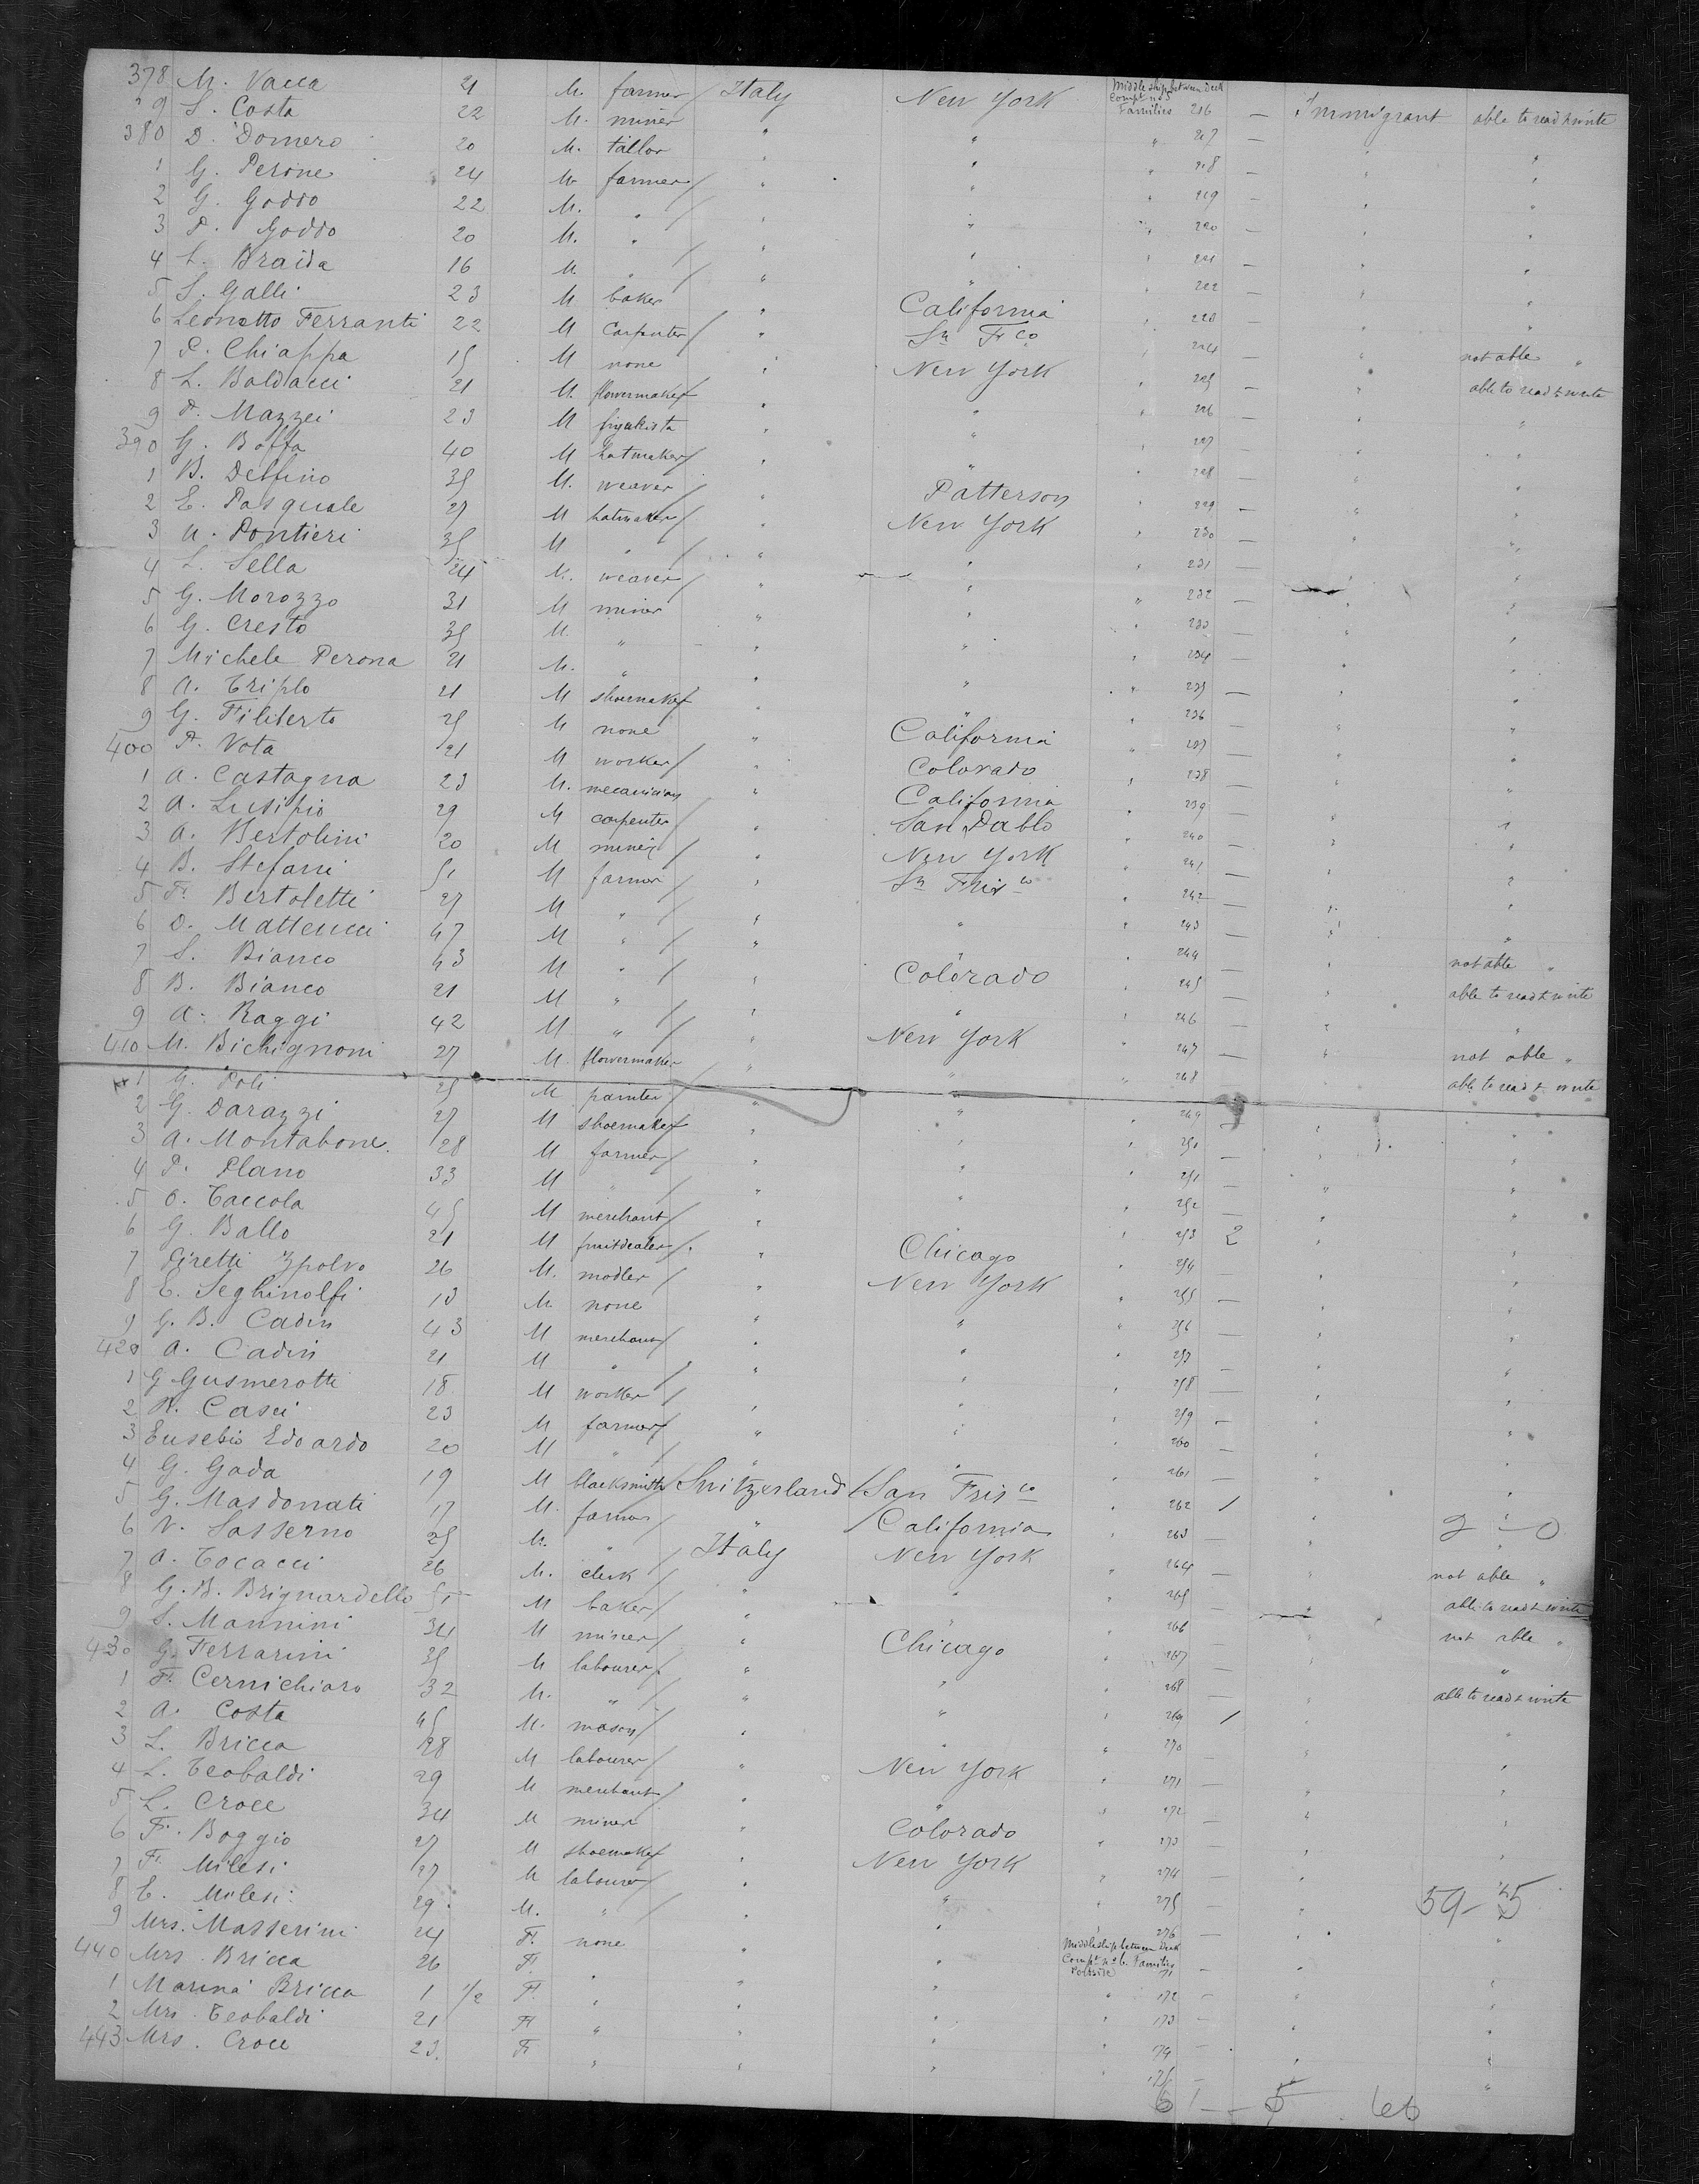 378 M. Vacca 21 M. farmer / Italy New York Middle ship between Deck Compt no 5 Families 216 — Immigrant able to read & write
" 9 S. Costa 22 M. miner " " " 217 — " "
380 D. Domero 20 M. taillor " " " 218 — " "
1 G. Perone 24 M. farmer / " " " 219 — " "
2 G. Goddo 22 M. " / " " " 220 — " "
3 P. Goddo 20 M. " / " " " 221 — " "
4 L. Braida 16 M " / " " " 222 — " "
5 S. Galli 23 M baker " California " 223 — " "
6 Leonetto Ferranti 22 M Carpenter / " Sn Fco " 224 — " not able "
7 P. Chiappa 15 M none " New York " 225 — " able to read & write
8 L. Baldacci 21 M. flowermaker / " " " 226 — " "
9 P. Mazzei 23 M figurista " " " 227 " "
390 G. Boffa 40 M hatmaker / " " " 228 — " "
1 B. Delfino 35 M. weaver / " Patterson " 229 — " "
2 E. Pasquale 27 M hatmaker / " New York " 230 — " "
3 A. Pontieri 35 M " / " " " 231 — " "
4 L. Sella 24 M. weaver / " " " 232 — " "
5 G. Morozzo 31 M miner " " " 233 — " "
6 G. Cresto 35 M. " " " " 234 — " "
7 Michele Perona 21 M. " " " " 235 — " "
8 A. Triplo 21 M shoemaker / " " " 236 — " "
9 G. Filiberto 25 M none " California " 237 — " "
400 P. Vota 21 M worker / " Colorado " 238 — " "
1 A. Castagna 23 M. mecanician " California " 239 — " "
2 A. Lusipio 29 M carpenter " San Pablo " 240 — " "
3 A. Bertolini 20 M miner / " New York " 241 — " "
4 B. Stefani 51 M farmer / " Sn Frisco " 242 — " "
5 F. Bertoletti 27 M " / " " " 243 — " "
6 D. Matteucci 47 M " / " " " 244 — " not able "
7 S. Bianco 43 M " / " Colorado " 245 — " able to read & write
8 B. Bianco 21 M " / " " " 246 — " "
9 A. Raggi 42 M " / " New York " 247 — " not able "
410 M. Bichignoni 27 M. flowermaker / " " " 248 " able to read & write
1 G. Poli 25 M painter / " " " 249 — " "
2 G. Darazzi 27 M shoemaker / " " " 250 — " "
3 A. Montabone 28 M farmer / " " " 251 — " "
4 P. Plano 33 M " / " " " 252 — " "
5 O. Taccola 45 M merchant / " " " 253 2 " "
6 G. Ballo 21 M fruitdealer / " Chicago " 254 — " "
7 Piretti 26 M. modler / " New York " 255 — " "
8 E. Seghinolfi 13 M. none " " " 256 — " "
9 G. B. Cadin 43 M merchant / " " " 257 — " "
420 A. Cadin 21 M " / " " " 258 — " "
1 G Gusmerotti 18 M worker / " " " 259 — " "
2 R. Casci 23 M farmer / " " " 260 — " "
3 Eusebio Edoardo 20 M " / " " " 261 — " "
4 G. Gada 19 M blacksmith / Switzerland / San Frisco " 262 / " "
5 G. Masdonati 17 M. farmer " / California " 263 — " " 2 – 0
6 N. Sasserno 25 M. " / Italy New York " 264 — " not able "
7 A. Tocacci 26 M. clerk / " " " 265 — " able to read & write
8 G. B. Brignardello 51 M baker / " " " 266 " not able "
9 S. Mannini 34 M miner / " Chicago " 267 — " "
430 G. Ferrarini 35 M labourer / " " " 268 — " able to read & write
1 F. Cernichiaro 32 M. " / " " " 269 / " "
2 A. Costa 45 M. mason / " " " 270 — " "
3 L. Bricca 28 M labourer " New York " 271 — " "
4 L. Teobaldi 29 M merchant / " " " 272 — " "
5 L. Croce 34 M miner " Colorado " 273 — " "
6 F. Boggio 27 M shoemaker / " New York " 274 — " "
7 F. Milesi 27 M labourer / " " " 275 — " " 59 – 5
8 E. Milesi 29 M. " / " " 276 — " "
9 Mrs. Masserini 24 F. none " " Middle ship between Deck Compt no 6. Families Portside 171 — " "
440 Mrs. Bricca 26 F. " " " " 172 — " "
1 Marina Bricca 1 1/2 F. " " " " 173 — " "
2 Mrs. Teobaldi 21 F " " " " 174 — " "
443 Mrs. Croce 23. F " " " " 175 — " "
61 – 5 66